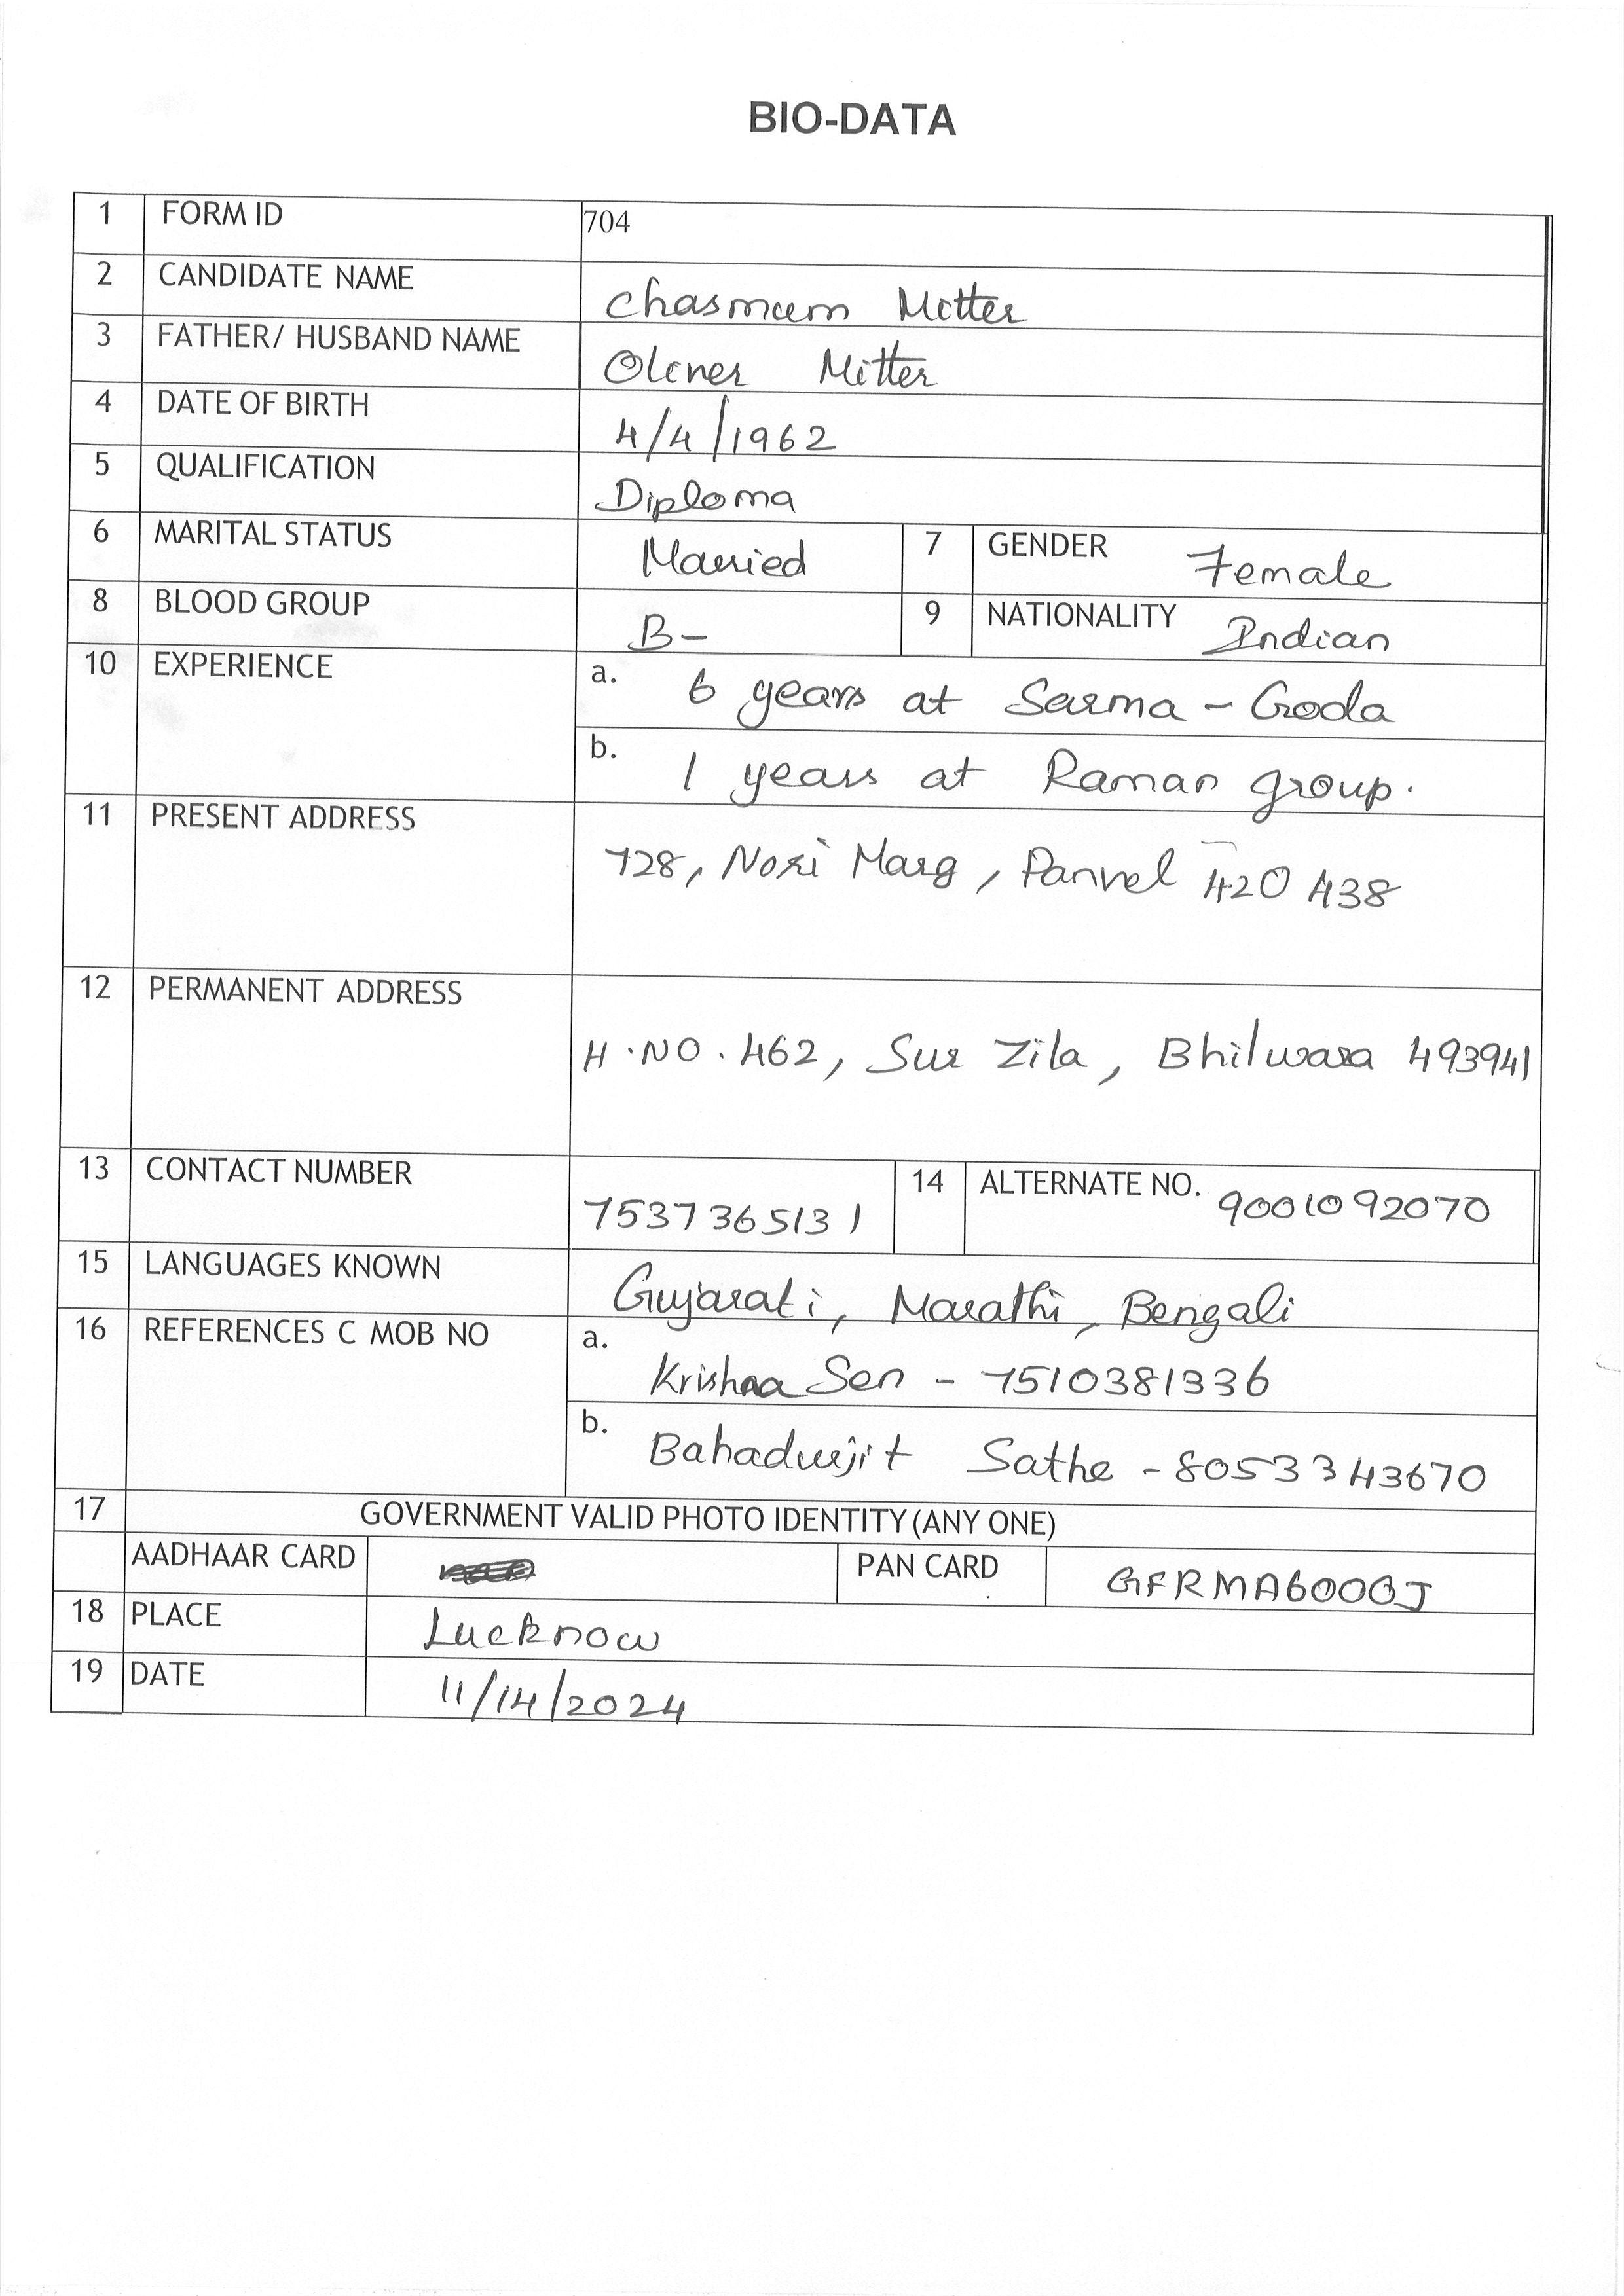 BIO-DATA
1 FORM ID 704
2 CANDIDATE NAME Chasmum Mitter
3 FATHER/ HUSBAND NAME Oliver Mitter
4 DATE OF BIRTH 4/4/1962
5 QUALIFICATION Diploma
6 MARITAL STATUS Married 7 GENDER Female
8 BLOOD GROUP B- 9 NATIONALITY Indian
10 EXPERIENCE a. 6 years at Sarma - Goda
b. 1 years at Raman group.
11 PRESENT ADDRESS 728, Nori Marg, Panvel 420 438
12 PERMANENT ADDRESS H.NO. 462, Sur Zila, Bhilwara 493941
13 CONTACT NUMBER 7537365131 14 ALTERNATE NO. 9001092070
15 LANGUAGES KNOWN Gujarati, Marathi, Bengali
16 REFERENCES C MOB NO a. Krishna Sen - 7510381336
b. Bahadurjit Sathe - 8053343670
17 GOVERNMENT VALID PHOTO IDENTITY (ANY ONE)
AADHAAR CARD PAN CARD
18 PLACE Lucknow
19 DATE 11/14/2024